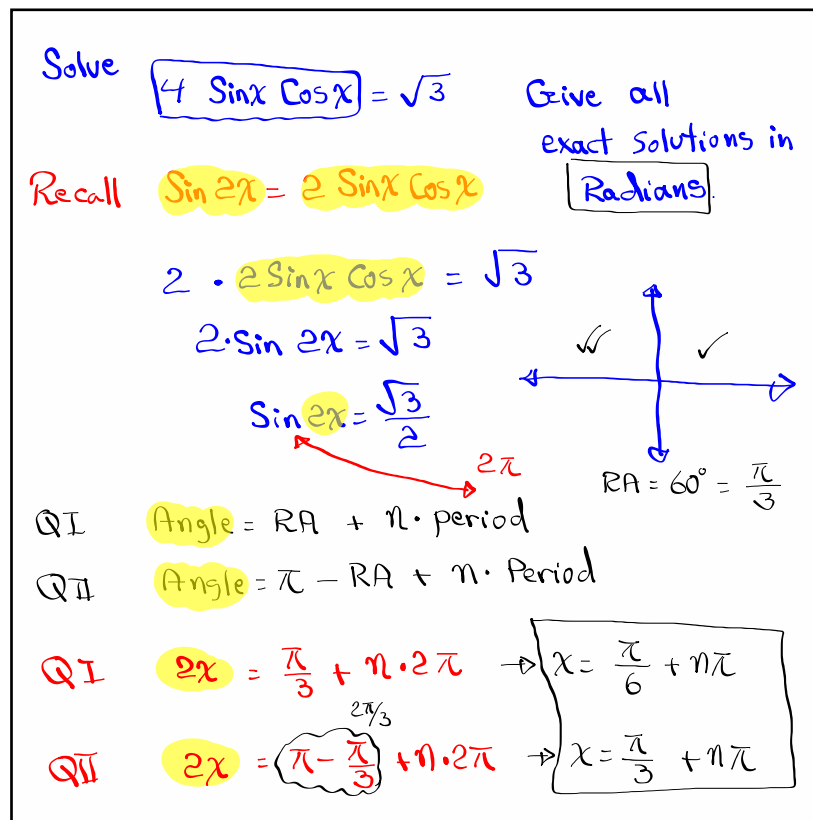 Solve 4 Sinx Cosx = √3
Give all
exact solutions in
Radians.
Recall Sin 2x = 2 Sinx Cosx
2 · 2 Sinx Cosx = √3
2·Sin 2x = √3
Sin 2x = √3/2
2π
RA = 60° = π/3
QI Angle = RA + n · period
QII Angle = π - RA + n · Period
QI 2x = π/3 + n·2π → x = π/6 + nπ
2π/3
QII 2x = π - π/3 + n·2π → x = π/3 + nπ